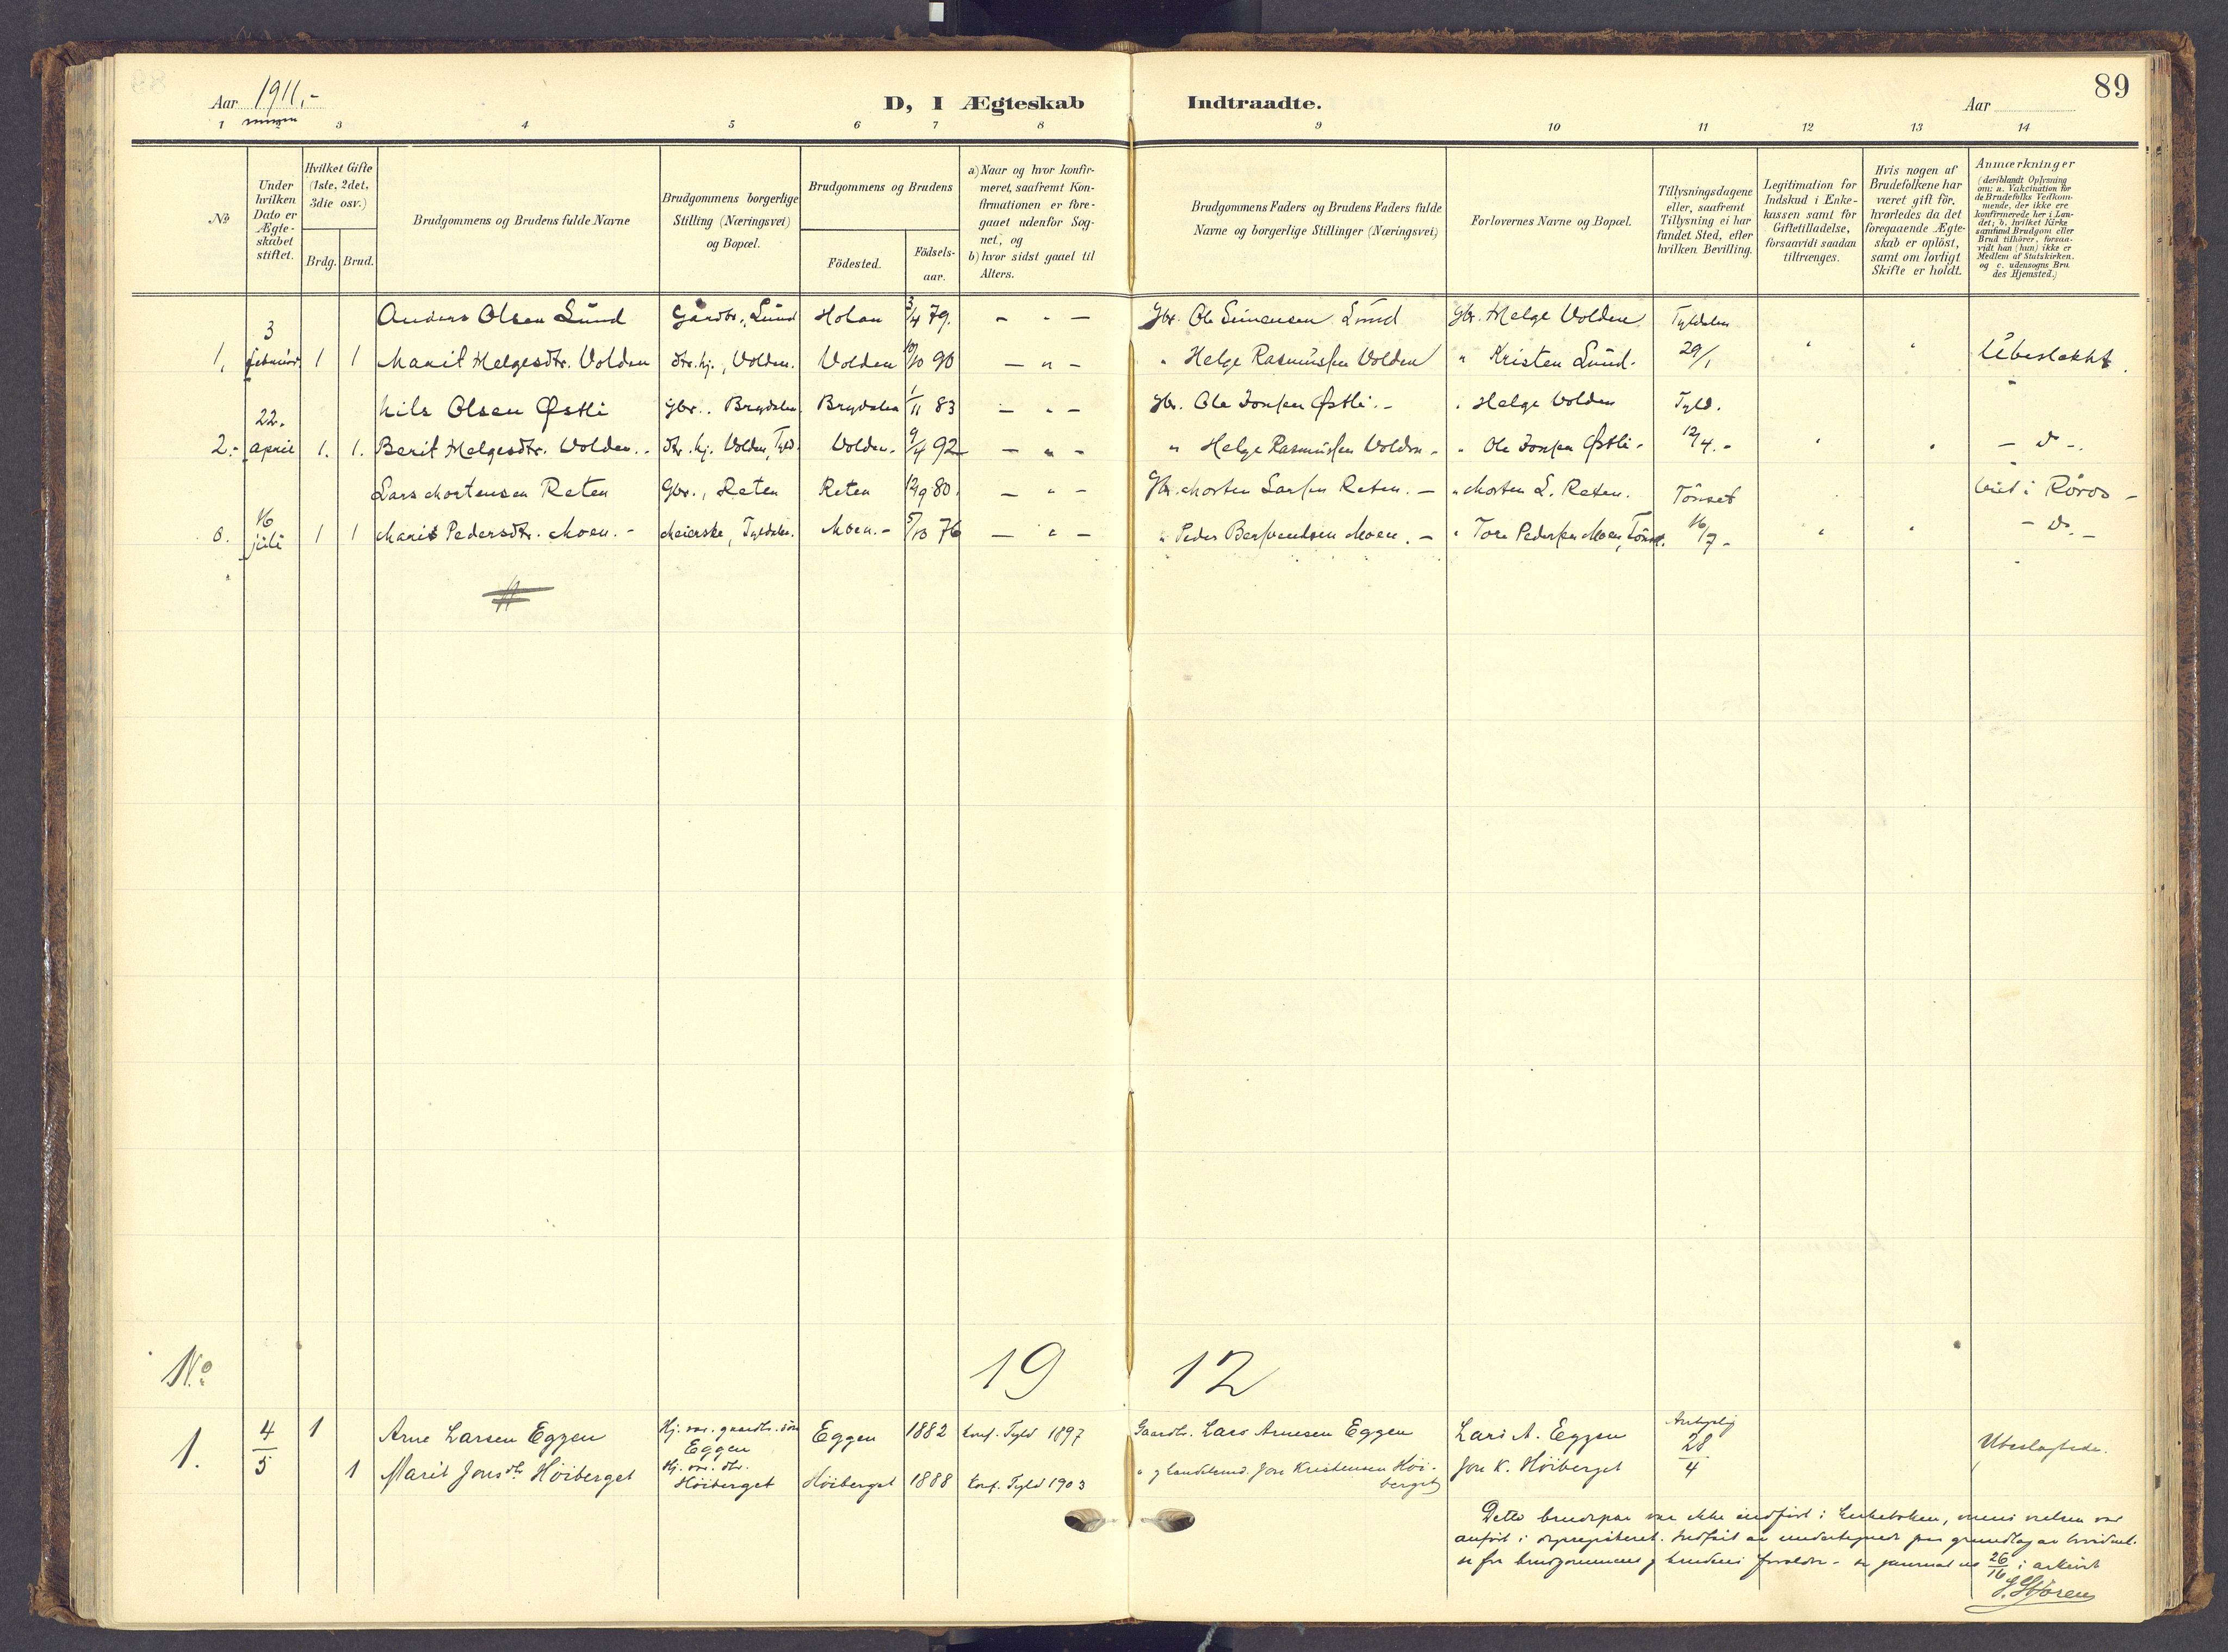 89
Aar 1911.-
D, I Ægteskab Indtraadte.
Aar
1 2 3 4 5 6 7 8 9 10 11 12 13 14
No
Under hvilken Dato er Ægteskabet stiftet.
Hvilket Gifte (1ste, 2det, 3die osv.)
Brdg. Brud.
Brudgommens og Brudens fulde Navne
Brudgommens borgerlige Stilling (Næringsvei) og Bopæl.
Brudgommens og Brudens
Födested.
Födsels-aar.
a) Naar og hvor konfir-
meret, saafremt Kon-
firmationen er fore-
gaaet udenfor Sog-
net, og
b) hvor sidst gaaet til
Alters.
Brudgommens Faders og Brudens Faders fulde
Navne og borgerlige Stillinger (Næringsvei)
Forlovernes Navne og Bopæl.
Tillysningsdagene
eller, saafremt
Tillysning ei har
fundet Sted, efter
hvilken Bevilling.
Legitimation for
Indskud i Enke-
kassen samt for
Giftetilladelse,
forsaavidt saadan
tiltrænges.
Hvis nogen af
Brudefolkene har
været gift för,
hvorledes da det
foregaaende Ægte-
skab er oplöst,
samt om lovligt
Skifte er holdt.
Anmærkninger
(deriblandt Oplysning
om: a. Vakcination for
de Brudefolks Vedkom-
mende, der ikke ere
konfirmerede her i Lan-
det; b. hvilket Kirke
samfund Brudgom eller
Brud tilhörer, forsaa-
vidt han (hun) ikke er
Medlem af Statskirken.
og c. udensogns Bru
des Hjemsted.)
3 Anders Olsen Lund Gårdbr., Lund Holan 3/4 79. - " - Gbr. Ole Simensen Lund Gbr. Helge Volden Tyldalen
1, februar. 1 1 Marit Helgesdtr. Volden dtr. hj., Volden. Volden 10/10 90 - " - " Helge Rasmussen Volden " Kristen Lund. 29/1 " " Ubeslekkt.
22. Nils Olsen Østli Gbr., Brydalen Brydalen 1/11 83 - " - Gbr. Ole Jonsen Østli.- " Helge Volden Tyld.
2.- april 1. 1. Berit Helgesdtr. Volden.- dtr. hj. Volden, Tyld. Volden.- 9/4 92 - " - " Helge Rasmussen Volden - " Ole Jonsen Østli - 12/4.- " " - do -.
Lars Mortensen Reten Gbr., Reten Reten 12/9 80. - " - Gbr. Morten Larsen Reten. - " Morten L. Reten. Tönset i Röros -
16 juli 1 1 Marit Pedersdtr. Moen.- Meierske, Tyldalen. Moen.- 5/10 76 - " - " Peder Bersvendsen Moen. - " Tore Pedersen Moen, Tönset. 16/7 - " " - do. -
No 19 12
1. 4/5 1 Arne Larsen Eggen Hj. vær. gaardbr. sön Eggen Eggen 1882 konf. Tyld 1897 Gaardbr. Lars Arnesen Eggen Lars A. Eggen 28/4 Ubeslægtede.
1 Marit Jonsdtr Höiberget Hj. vær. dtr. Höiberget Höiberget 1888 konf. Tyld 1903 " og landhand. Jon Kristensen Höi-
berget Jon K. Höiberget
Dette brudepar var ikke indfört i kirkeboken, men vielsen var
anfört i Indfört av undertegnede paa grundlag av
se fra brudgommens og brudens forældre - se journal nr 26/16 i arkivet
S. Stören